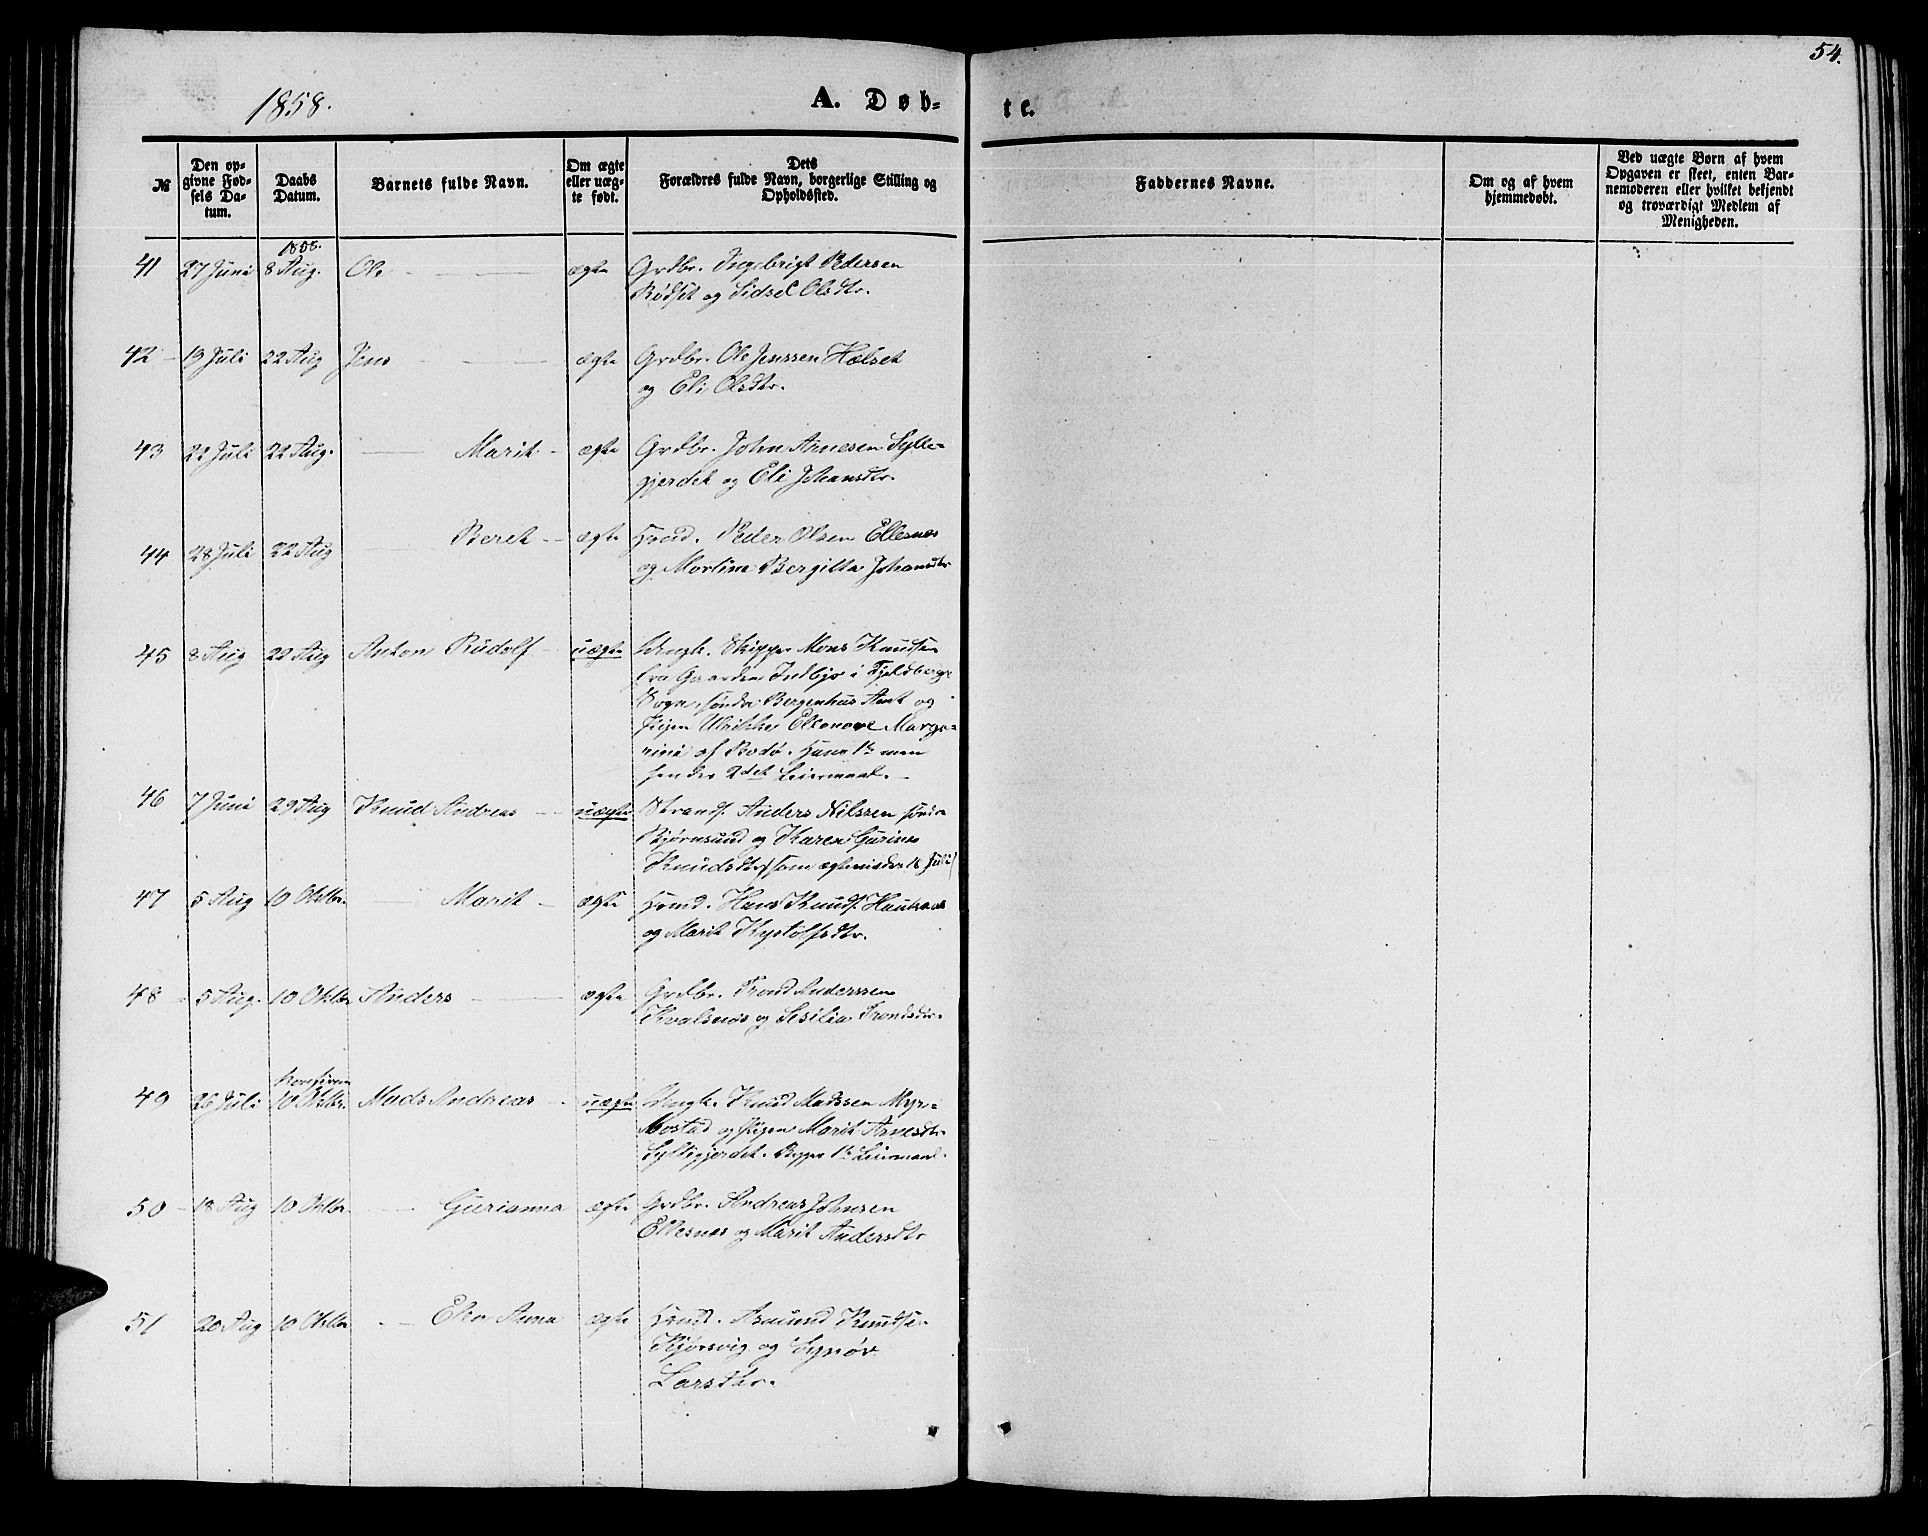 54.
1858.
A. Døb-
te.
№
Den op-
givne Fød-
sels Da-
tum.
Daabs
Datum.
Barnets fulde Navn.
Om ægte
eller uæg-
te født.
Dets
Forældres fulde Navn, borgerlige Stilling og
Opholdssted.
Faddernes Navne.
Om og af hvem
hjemmedøbt.
Ved uægte Børn af hvem
Opgaven er skeet, enten Bar-
nemoderen eller hvilket bekjendt
og troværdigt Medlem af
Menigheden.
1858.
41 27 Juni 8 Aug. Ole ægte Grdbr. Ingebrigt Pedersen
Rødset og Sidsel Olsdtr.
42 - 19 Juli 22 Aug Jens ægte Grdbr. Ole Jenssen Hælset
og Eli Olsdtr.
43 22 Juli 22 Aug. Marit - ægte Grdbr. John Arnesen Sylte-
gjerdet og Eli Johansdtr.
44 28 Juli 22 Aug Beret - ægte Hmd. Peder Olsen Ellesnæs
og Martine Bergitta Johansdtr
45 8 Aug 22 Aug Anton Rudolf uægte Ungk. Skipper Mons Knudsen
fra Gaarden Indbjo i Fjeldbergs
Sogn, søndre Bergenhus Amt og
Pigen Ulrikke Elleonore Marga-
rine af Bodø. Hans 1te men
hendes 2det Leiermaal.
46 7 Juni 29 Aug Knud Andreas uægte Strands. Anders Nilssen søndre
Bjørnsund og Karen Gurine
Knudsdtr (som ægteviedes 18 Juli)
47 5 Aug 10 Oktbr. Marit - ægte Hmd. Hans Knuds.
og Marit
48 - 5 Aug. 10 Oktbr Anders ægte Grdbr. Trond Anderssen
Kvalsnæs og Sesilia Trondsdtr.
49 26 Juli 10 Oktbr. Mads Andreas uægte Ungk. Knud Madssen Myr-
bostad og Pigen Marit Arnesdtr
Syltegjerdet. Begges 1te Leiermaal.
50 - 18 Aug 10 Oktbr. Gurianna ægte Grdbr. Andreas Johnsen
Ellesnæs og Marit Andersdtr
51 20 Aug 10 Oktbr Elen Anna ægte Hmd. Amund Knudsen
Bjørsvig og Synøv
Larsdtr.